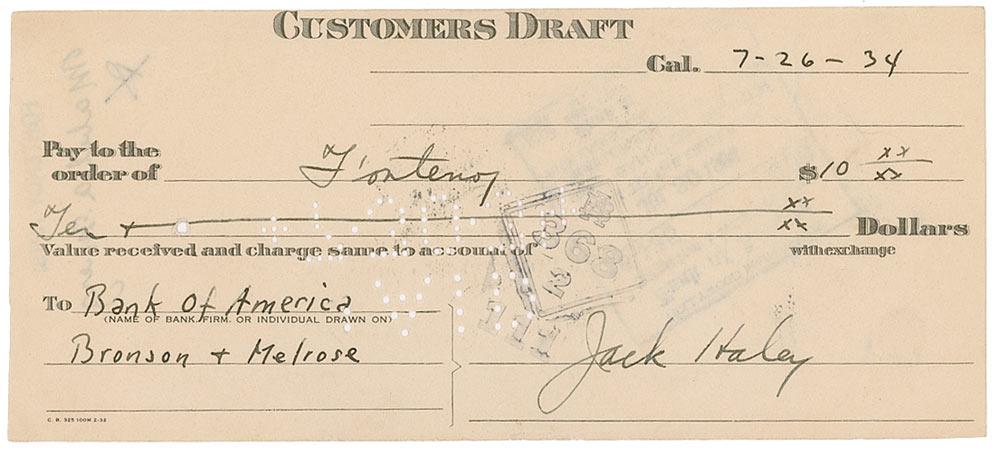 CUSTOMERS DRAFT
Cal. 7-26-34
Pay to the
order of Fontenoy $10 xx/xx
Ten + xx/xx Dollars
Value received and charge same to account of with exchange
To Bank Of America
(NAME OF BANK, FIRM, OR INDIVIDUAL DRAWN ON)
Bronson + Melrose
Jack Haley
C. B. 325 100M 2-32
363